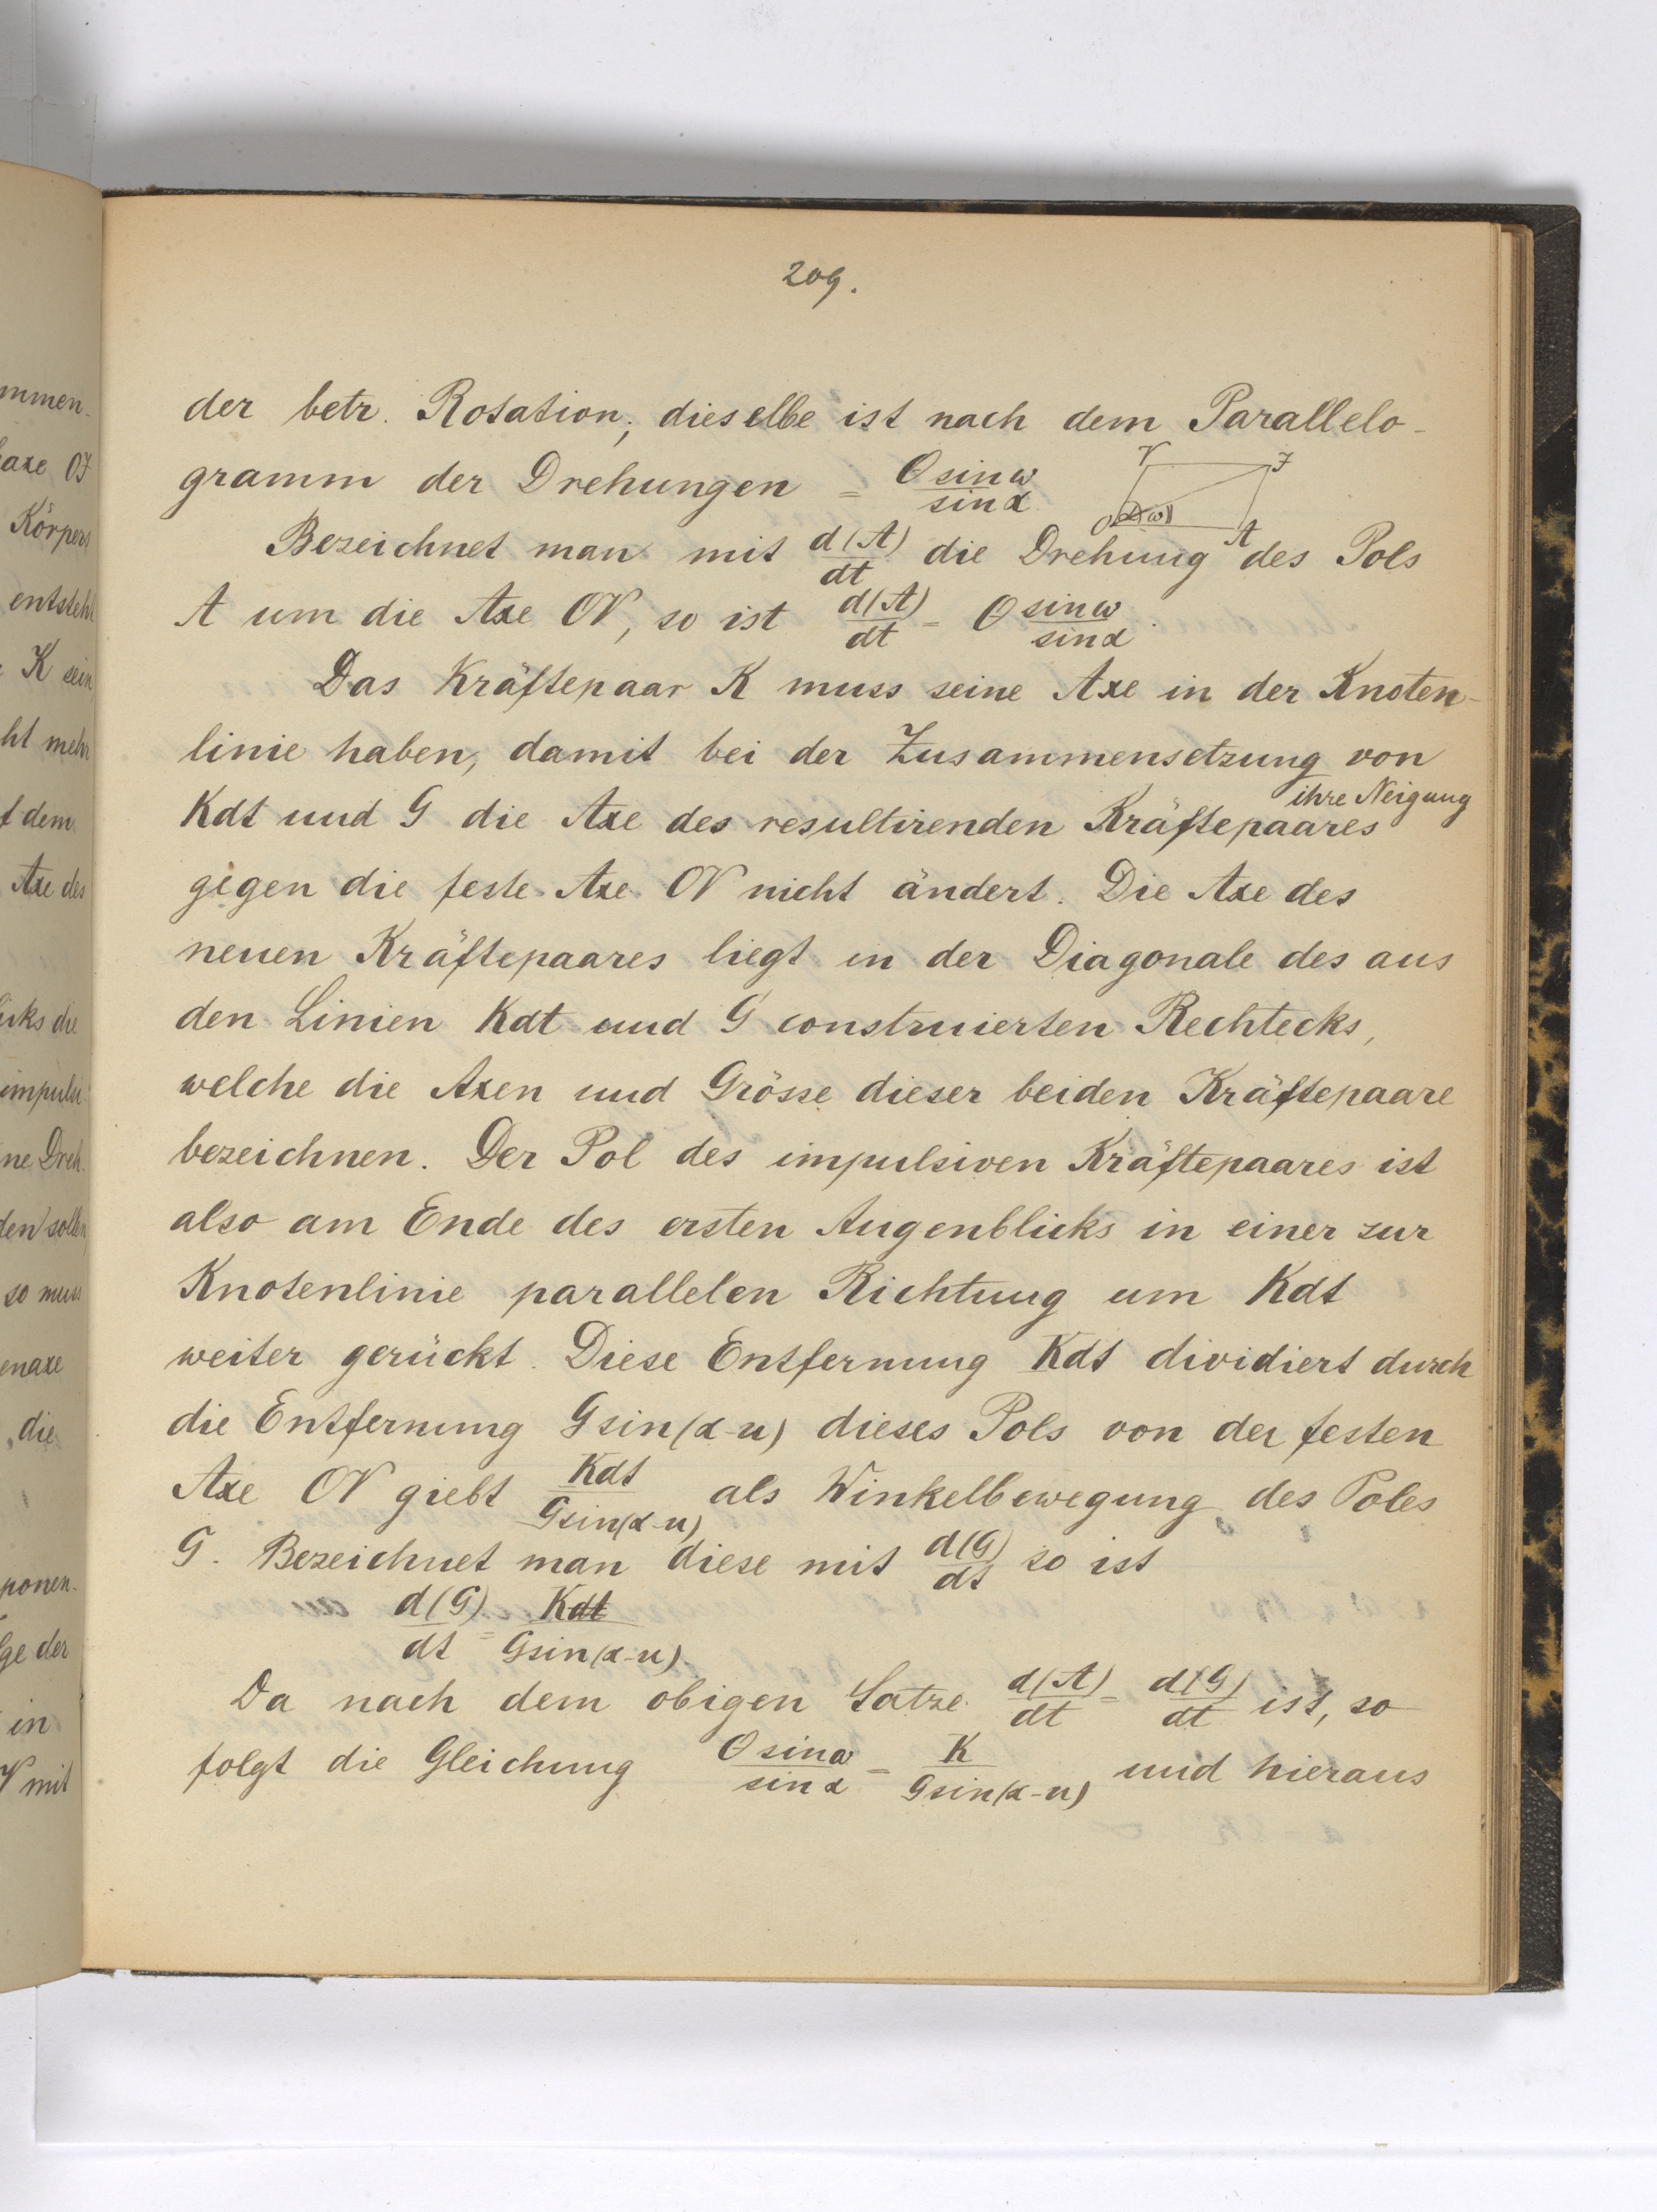 mmen-
axe OJ
Körpers
entsteht
K sein
ht mehr
f dem
Axe des
cks die
impuls
ne Dreh-
den sollen
so muss
enaxe
die
ponen-
ge der
in
V mit
209.
der betr. Rotation; dieselbe ist nach dem Parallelo-
gramm der Drehungen = Θ sin ω / sin α
V J
O α ω A
Bezeichnet man mit d(A)/dt die Drehung des Pols
A um die Axe OV, so ist d(A)/dt = Θ sin ω / sin α.
Das Kräftepaar K muss seine Axe in der Knoten-
linie haben, damit bei der Zusammensetzung von
ihre Neigung
Kdt und G die Axe des resultirenden Kräftepaares
gegen die feste Axe OV nicht ändert. Die Axe des
neuen Kräftepaares liegt in der Diagonale des aus
den Linien Kdt und G construierten Rechtecks,
welche die Axen und Grösse dieser beiden Kräftepaare
bezeichnen. Der Pol des impulsiven Kräftepaares ist
also am Ende des ersten Augenblicks in einer zur
Knotenlinie parallelen Richtung um Kdt
weiter gerückt. Diese Entfernung Kdt dividiert durch
die Entfernung G sin(α-u) dieses Pols von der festen
Axe OV giebt Kdt / G sin(α-u) als Winkelbewegung des Poles
G. Bezeichnet man diese mit d(G)/dt so ist
d(G)/dt = Kdt / G sin(α-u)
Da nach dem obigen Satze d(A)/dt = d(G)/dt ist, so
folgt die Gleichung Θ sin ω / sin α = K / G sin(α-u) und hieraus